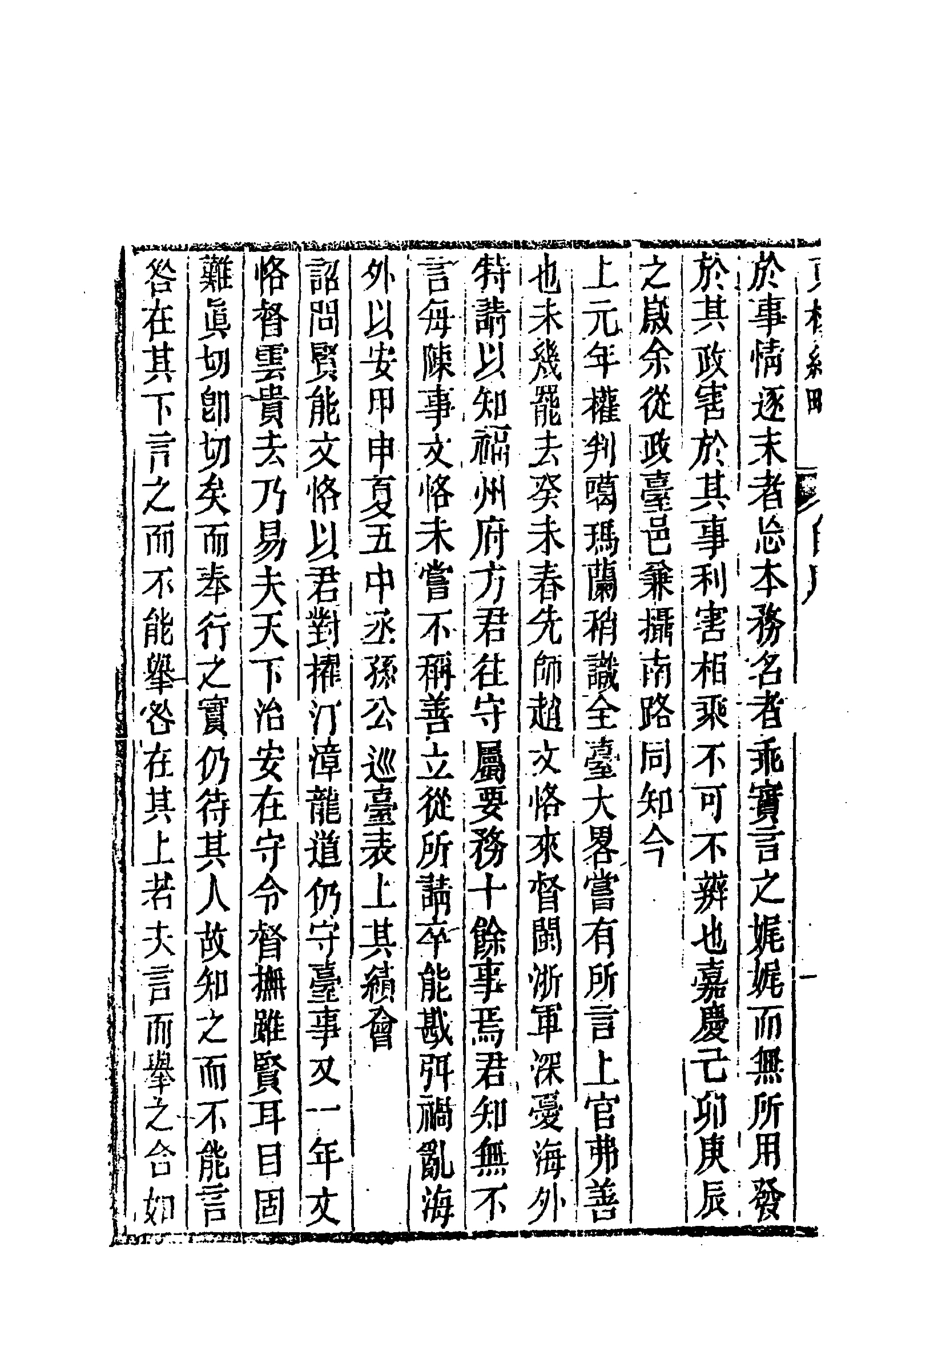 於事情逐末者忘本務名者乖實言之娓娓而無所用發
於其政害於其事利害相乘不可不辨也嘉慶己卯庚辰
之歲余從政臺邑兼攝南路同知今
上元年權判噶瑪蘭稍識全臺大畧嘗有所言上官弗善
也未幾罷去癸未春先師趙文恪來督閩浙軍深憂海外
特請以知福州府方君往守屬要務十餘事焉君知無不
言每陳事文恪未嘗不稱善立從所請卒能戡弭禍亂海
外以安甲申夏五中丞孫公巡臺表上其績會
詔問賢能文恪以君對擢汀漳龍道仍守臺事又一年文
恪督雲貴去乃易夫天下治安在守令督撫雖賢耳目固
難眞切卽切矣而奉行之實仍待其人故知之而不能言
咎在其下言之而不能舉咎在其上若夫言而舉之合如